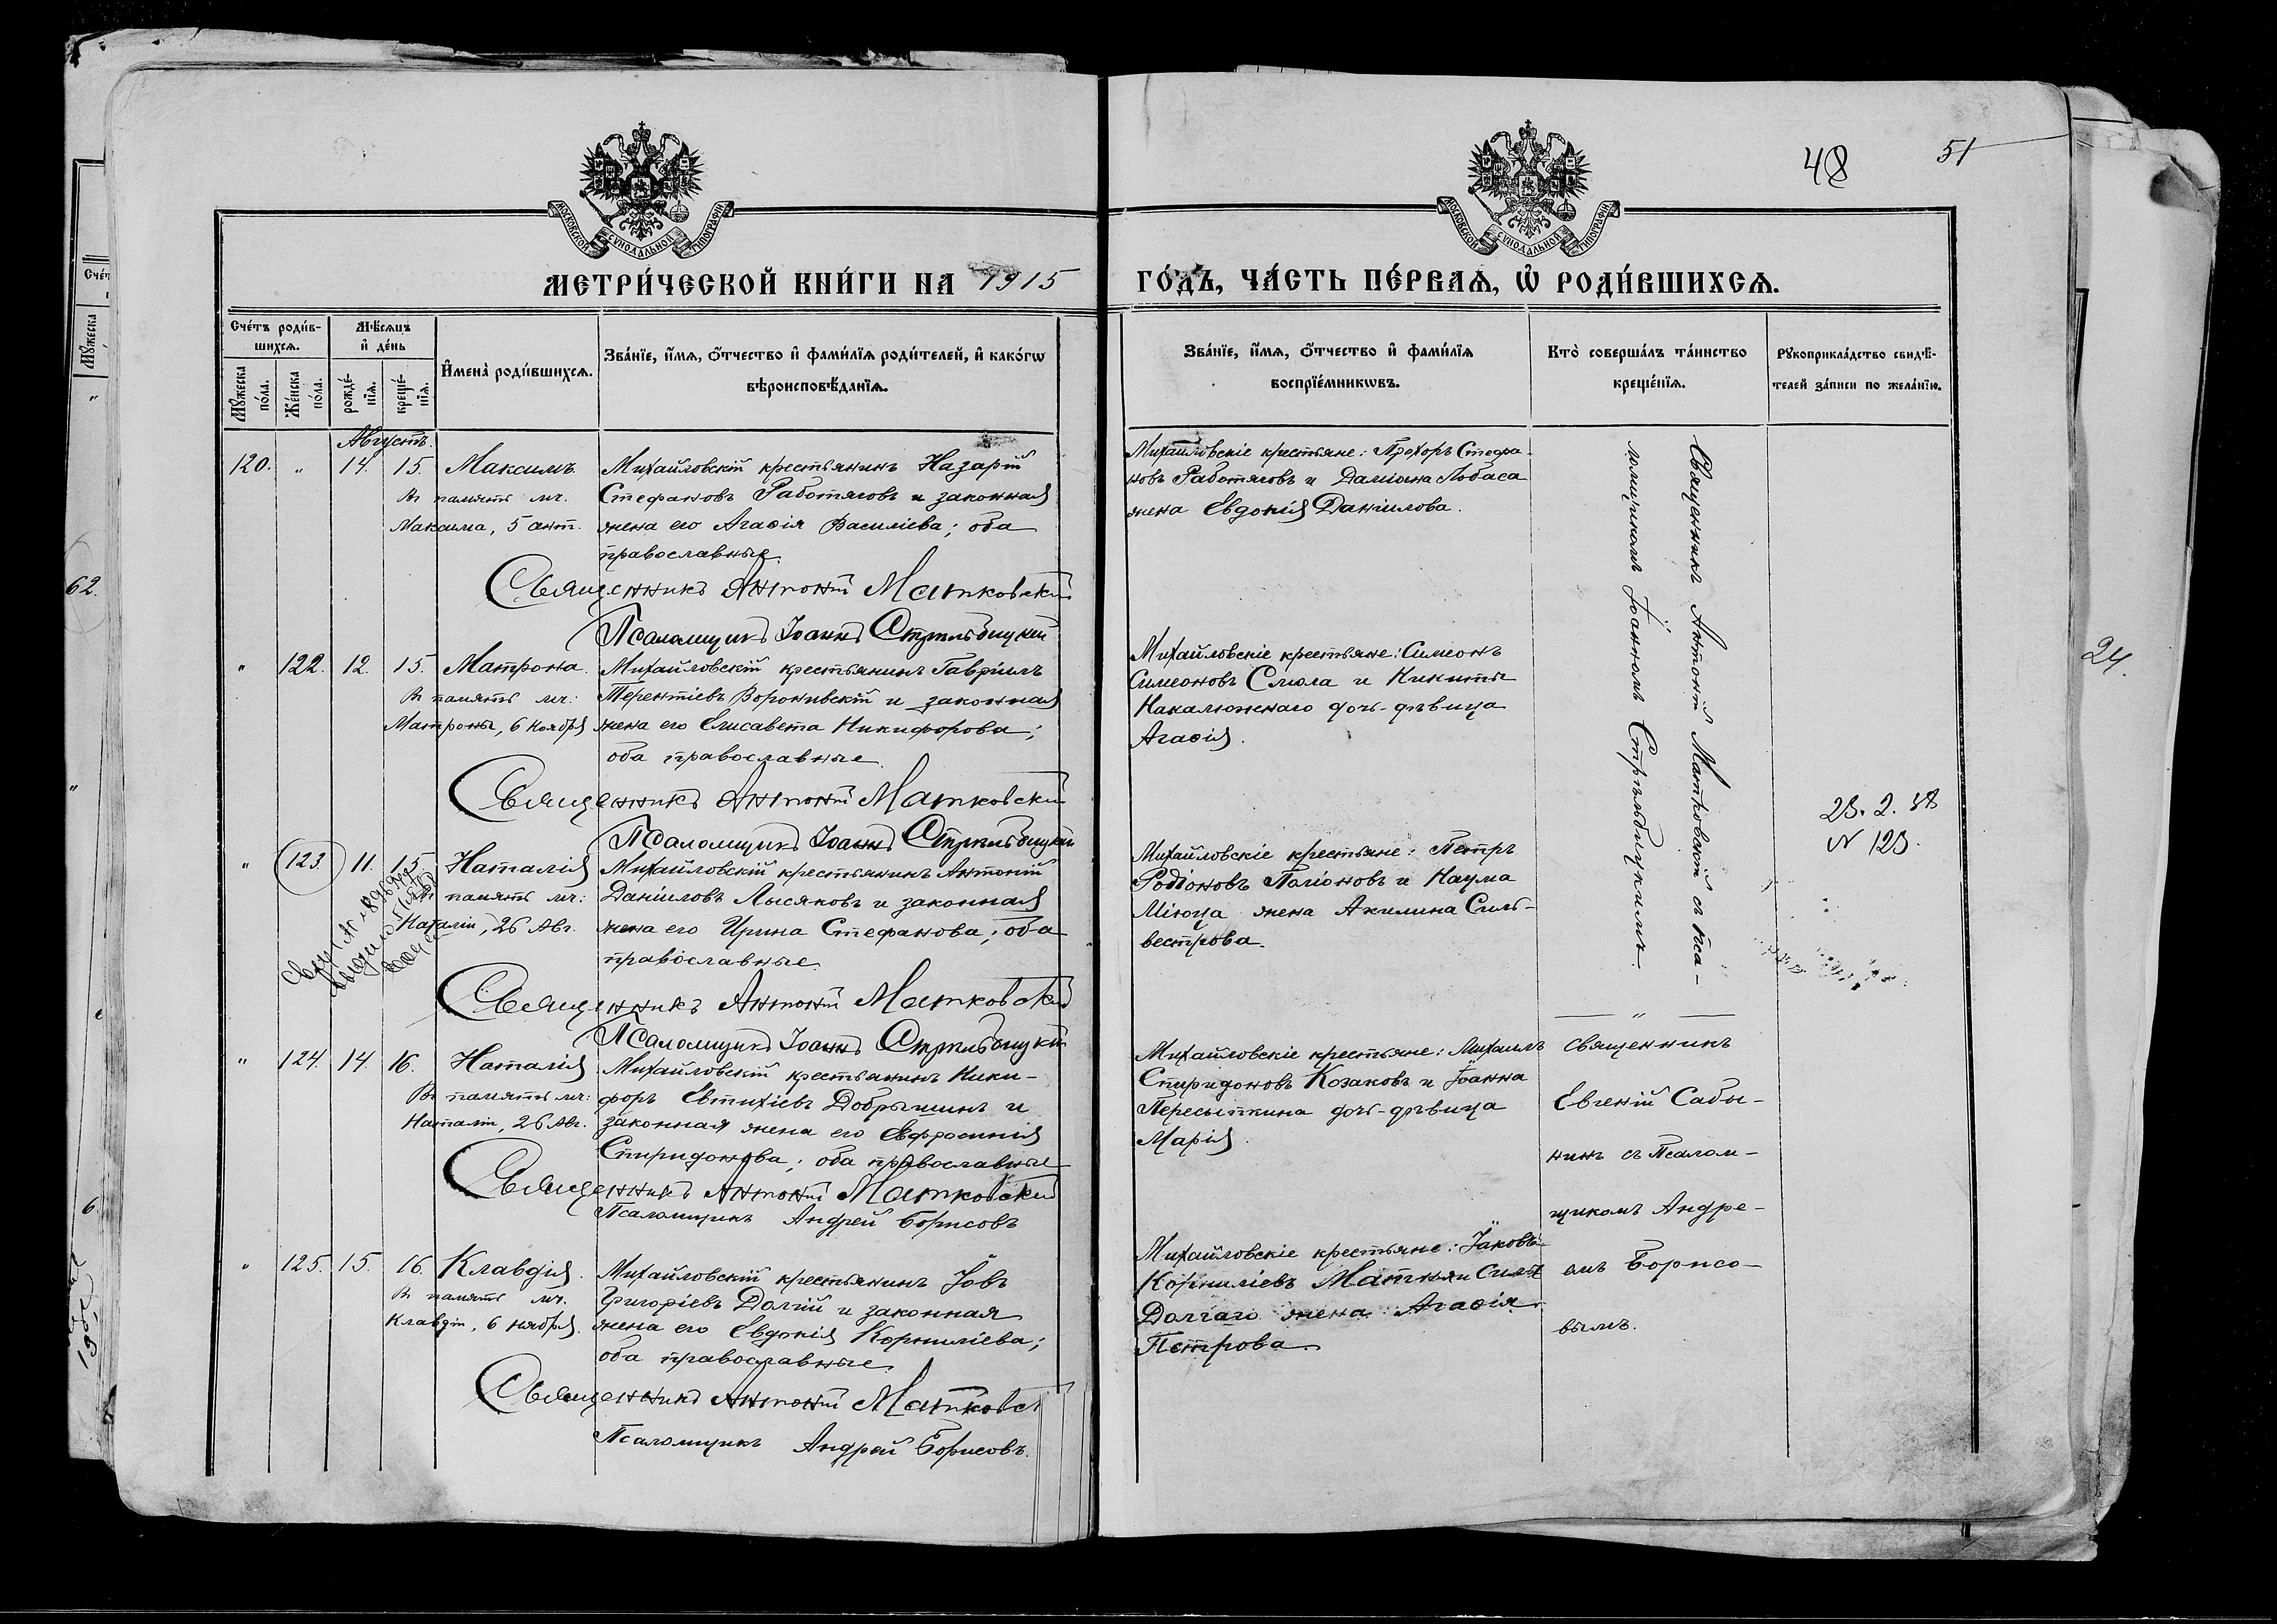 48
51
МОСКОВСКОЙ СУНОДАЛЬНОЙ ТИПОГРАФІИ
МОСКОВСКОЙ СУНОДАЛЬНОЙ ТИПОГРАФІИ
МЕТРИ́ЧЕСКОЙ КНИ́ГИ НА 1915
ГО́ДЪ, ЧА́СТЬ ПЕ́РВАѦ, Ѡ҆ РОДИ́ВШИХСѦ.
Сче́тъ роди́в-
шихсѧ.
Мѣ́сѧцъ
и҆ де́нь
Мꙋ́жеска
по́ла.
Же́нска
по́ла.
рожде́-
нїѧ.
креще́-
нїѧ.
И҆мена̀ роди́вшихсѧ.
Зва́нїе, и҆́мѧ, ѻ҆́тчество и҆ фами́лїѧ роди́телей, и҆ како́гѡ
вѣроисповѣ́данїѧ.
Зва́нїе, и҆́мѧ, ѻ҆́тчество и҆ фами́лїѧ
воспрїе́мникѡвъ.
Кто̀ соверша́лъ та́инство
креще́нїѧ.
Рꙋкоприкла́дство свидѣ́-
телей за́писи по жела́нїю.
Августъ.
120. " 14. 15. Максимъ
Въ память мч.
Максима, 5 авт.
Михайловскій крестьянинъ Назарій
Стефановъ Работяговъ и законная
жена его Агаѳія Василіева; оба
православные.
Священникъ Антоній Матковскій
Псаломщикъ Іоаннъ Стрѣльбицкій
Михайловскіе крестьяне: Прохоръ Стефа-
новъ Работяговъ и Даміана Лобаса
жена Евдокія Даніилова.
" 122. 12. 15. Матрона.
Въ память мч:
Матроны, 6 ноября
Михайловскій крестьянинъ Гавріилъ
Терентіевъ Воронивскій и законная
жена его Елисавета Никифорова;
оба православные.
Священникъ Антоній Матковскій
Псаломщикъ Іоаннъ Стрѣльбицкій
Михайловскіе крестьяне: Симеонъ
Симеоновъ Смола и Никиты
Накалюжнаго дочь-дѣвица
Агаѳія.
" 123. 11. 15. Наталія
Въ память мч:
Наталіи, 26 Авг.
Михайловскій крестьянинъ Антоній
Даніиловъ Лысяковъ и законная
жена его Ирина Стефанова; оба
православные.
Священникъ Антоній Матковскій
Псаломщикъ Іоаннъ Стрѣльбицкій
Михайловскіе крестьяне: Петръ
Родіоновъ Паліоновъ и Наума
Міюца жена Акилина Силь-
вестрова.
Священникъ Антоній Матковскій съ пса-
ломщикомъ Іоанномъ Стрѣльбицкимъ.
23. 2. 38
N 123.
" 124. 14. 16. Наталія
Въ память мч:
Наталіи, 26 Авг.
Михайловскій крестьянинъ Ники-
форъ Евтихіевъ Добрышинъ и
законная жена его Евфросинія
Спиридонова; оба православные
Священникъ Антоній Матковскій
Псаломщикъ Андрей Борисовъ
Михайловскіе крестьяне: Михаилъ
Спиридоновъ Козаковъ и Іоанна
Пересыпкина дочь-дѣвица
Марія.
Священникъ
Евгеній Сабы-
нинъ съ Псалом-
щикомъ Андре-
емъ Борисо-
вымъ.
" 125. 15. 16. Клавдія.
Въ память мч.
Клавдіи, 6 ноября.
Михайловскій крестьянинъ Іовъ
Григоріевъ Долгій и законная
жена его Евдокія Корниліева;
оба православные.
Священникъ Антоній Матковс
Псаломщикъ Андрей Борисовъ.
Михайловскіе крестьяне: Іаковъ
Корниліевъ
Долгаго жена Агаѳія
Петрова.
62.
24.
6.